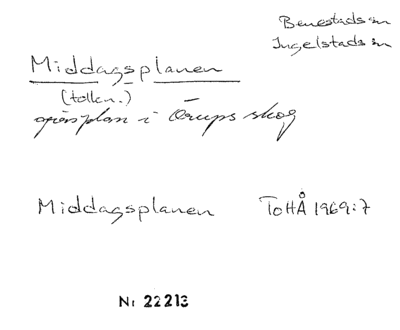 Benestads sn
Ingelstads sn
Middagsplanen
(tolkn.)
plan i Örups skog
Middagsplanen ToHÅ 1969:7
Nr 22213